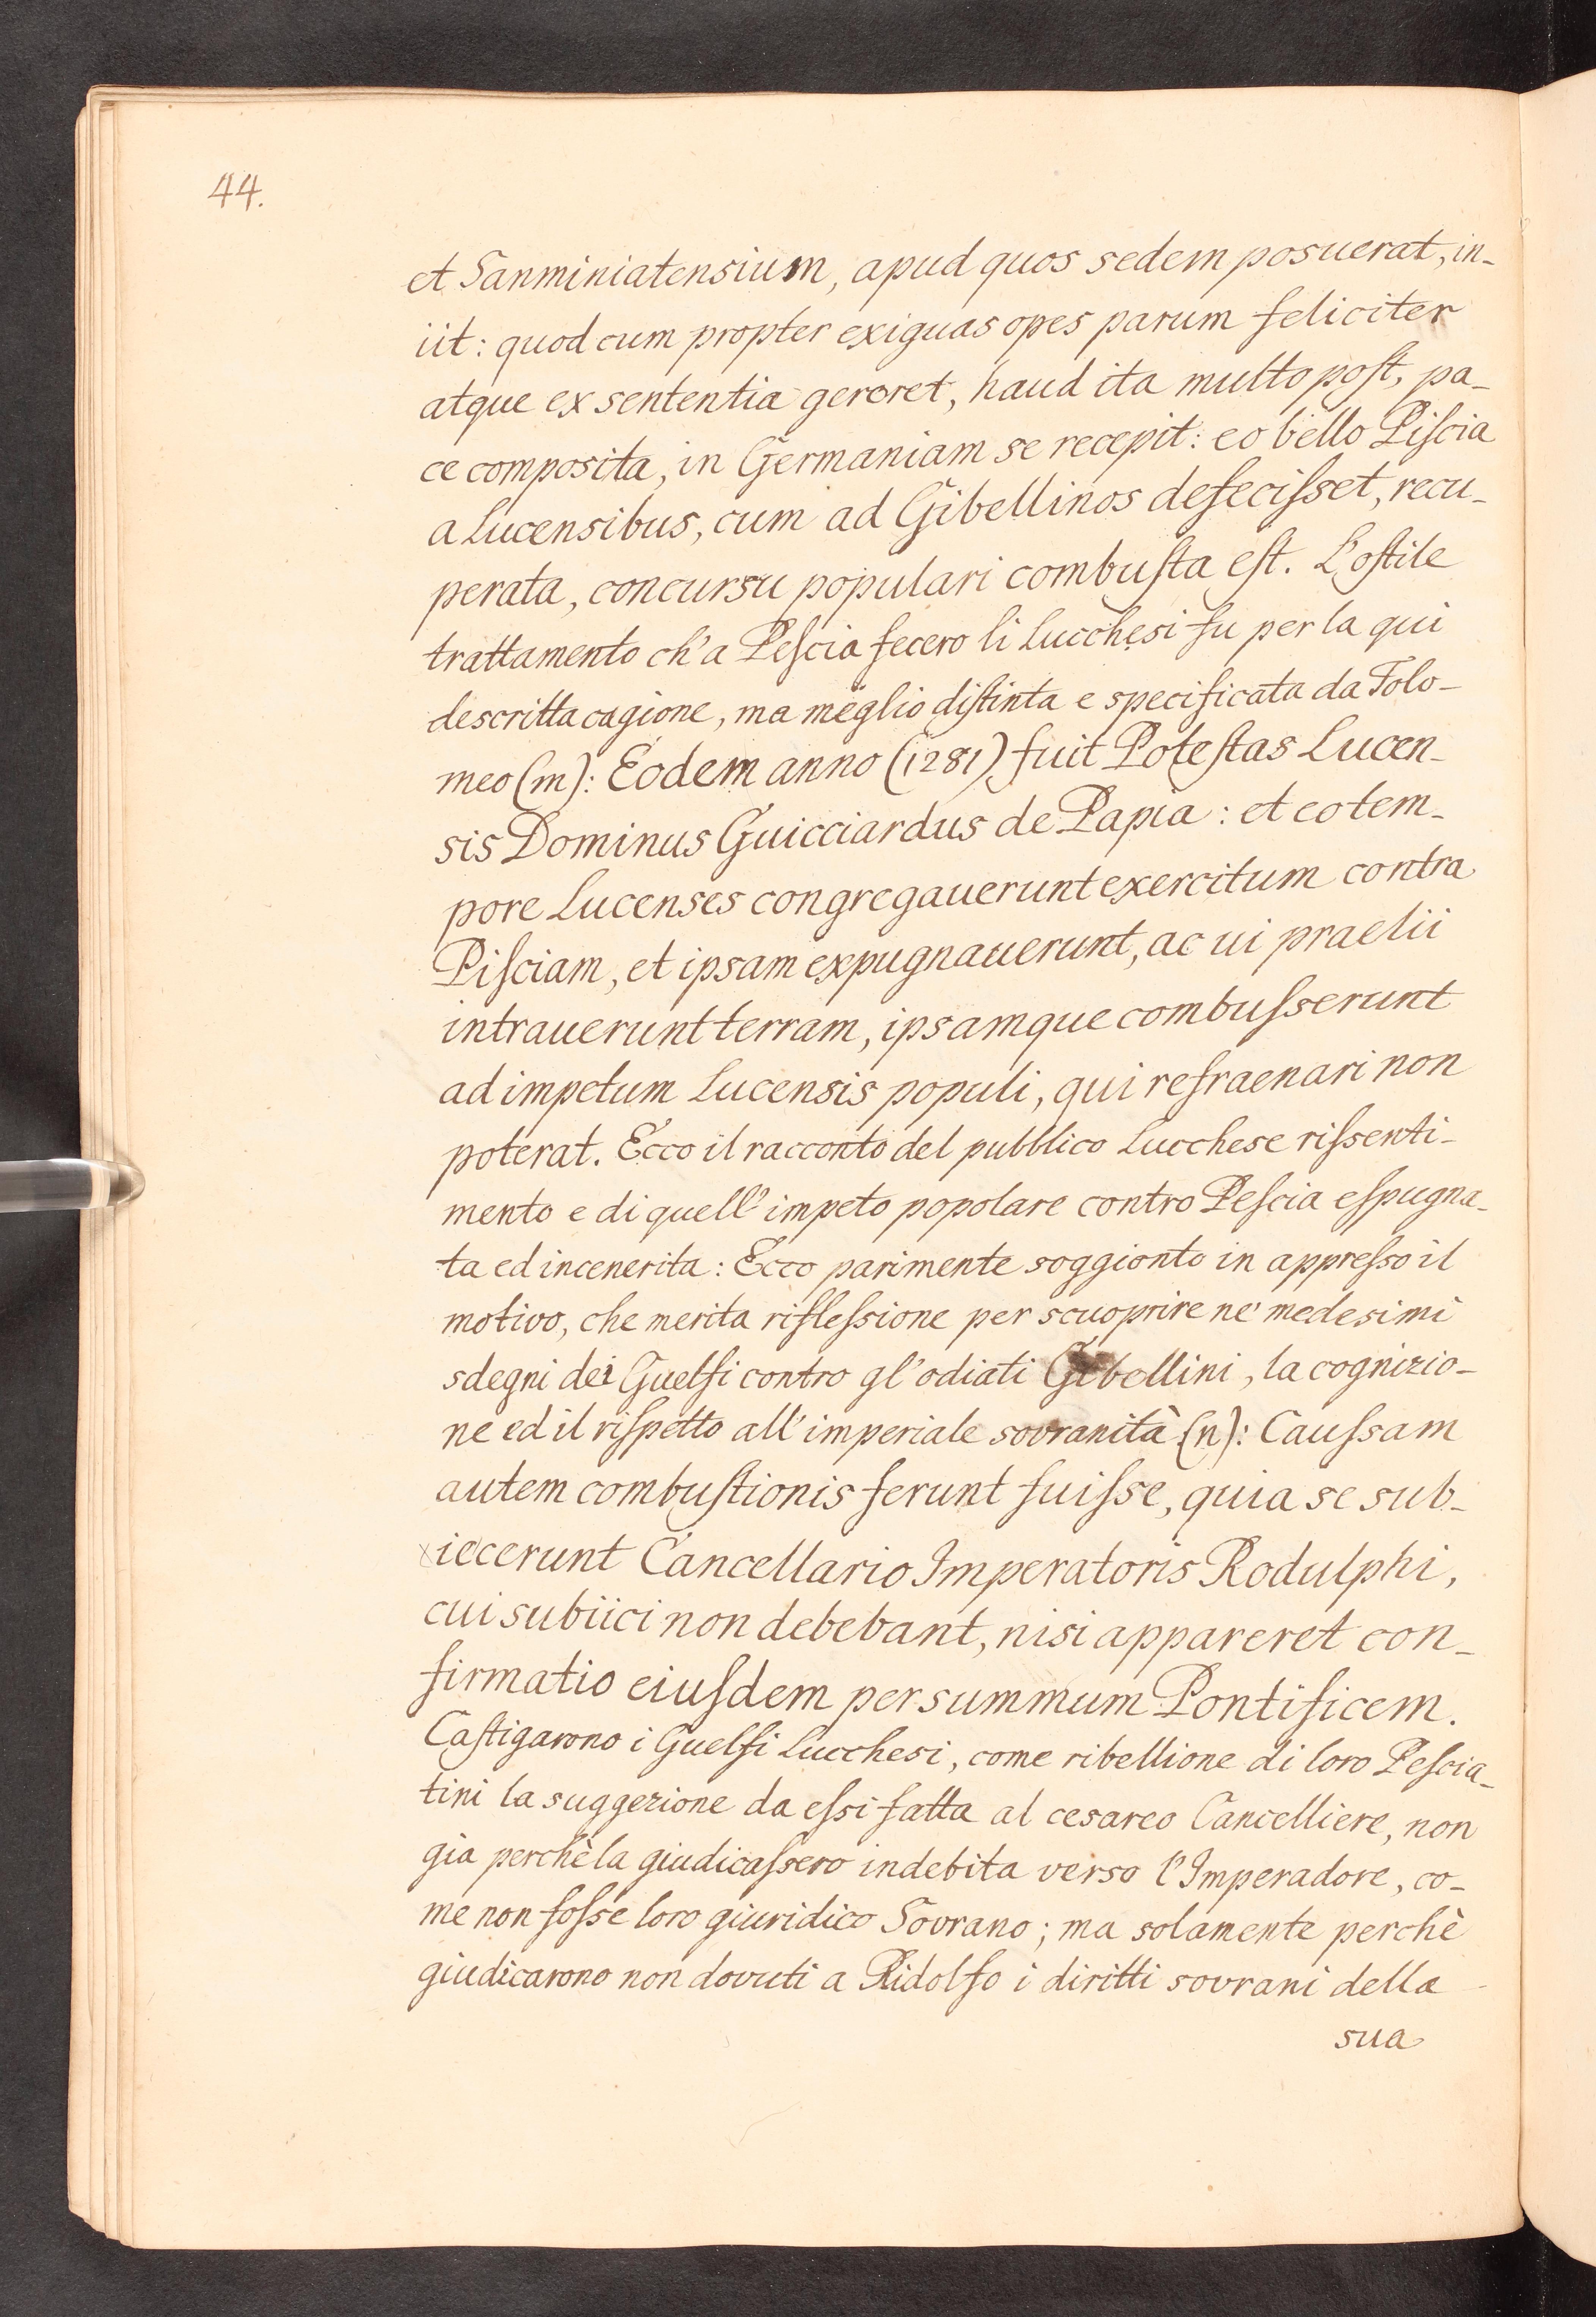 44.
et Sanminiatensium, apud quos sedem posuerat, in-
iit: quod cum propter exiguas opes parum feliciter
atque ex sententia gereret, haud ita multo poſt, pa-
ce composita, in Germaniam se recepit: eo bello Piſcia
a Lucensibus, cum ad Gibellinos defeciſset, recu-
perata, concursu populari combuſta eſt. L'oſtile
trattamento ch'a Peſcia fecero li Lucchesi fu per la qui
descritta cagione, ma meglio diſtinta e specificata da Tolo-
meo (m): Eodem anno (1281) fuit Poteſtas Lucen-
sis Dominus Guicciardus de Papia: et eo tem-
pore Lucenses congregauerunt exercitum contra
Piſciam, et ipsam expugnauerunt, ac ui praelii
intrauerunt terram, ipsamque combuſserunt
ad impetum Lucensis populi, qui refraenari non
poterat. Ecco il racconto del pubblico Lucchese riſsenti-
mento e di quell'impeto popolare contro Peſcia eſpugna-
ta ed incenerita: Ecco parimente soggionto in appreſso il
motivo, che merita rifleſsione per scuoprire ne' medesimi
sdegni dei Guelfi contro gl'odiati Gibellini, la cognizio-
ne ed il riſpetto all'imperiale sovranità (n): Cauſsam
autem combuſtionis ferunt fuiſse, quia se sub-
iecerunt Cancellario Imperatoris Rodulphi,
cui subiici non debebant, nisi appareret con-
firmatio eiuſdem per summum Pontificem.
Caſtigarono i Guelfi Lucchesi, come ribellione di loro Peſcia-
tini la suggezione da eſsi fatta al cesareo Cancelliere, non
gia perchè la giudicaſsero indebita verso l'Imperadore, co-
me non foſse loro giuridico Sovrano; ma solamente perchè
giudicarono non dovuti a Ridolfo i diritti sovrani della
sua